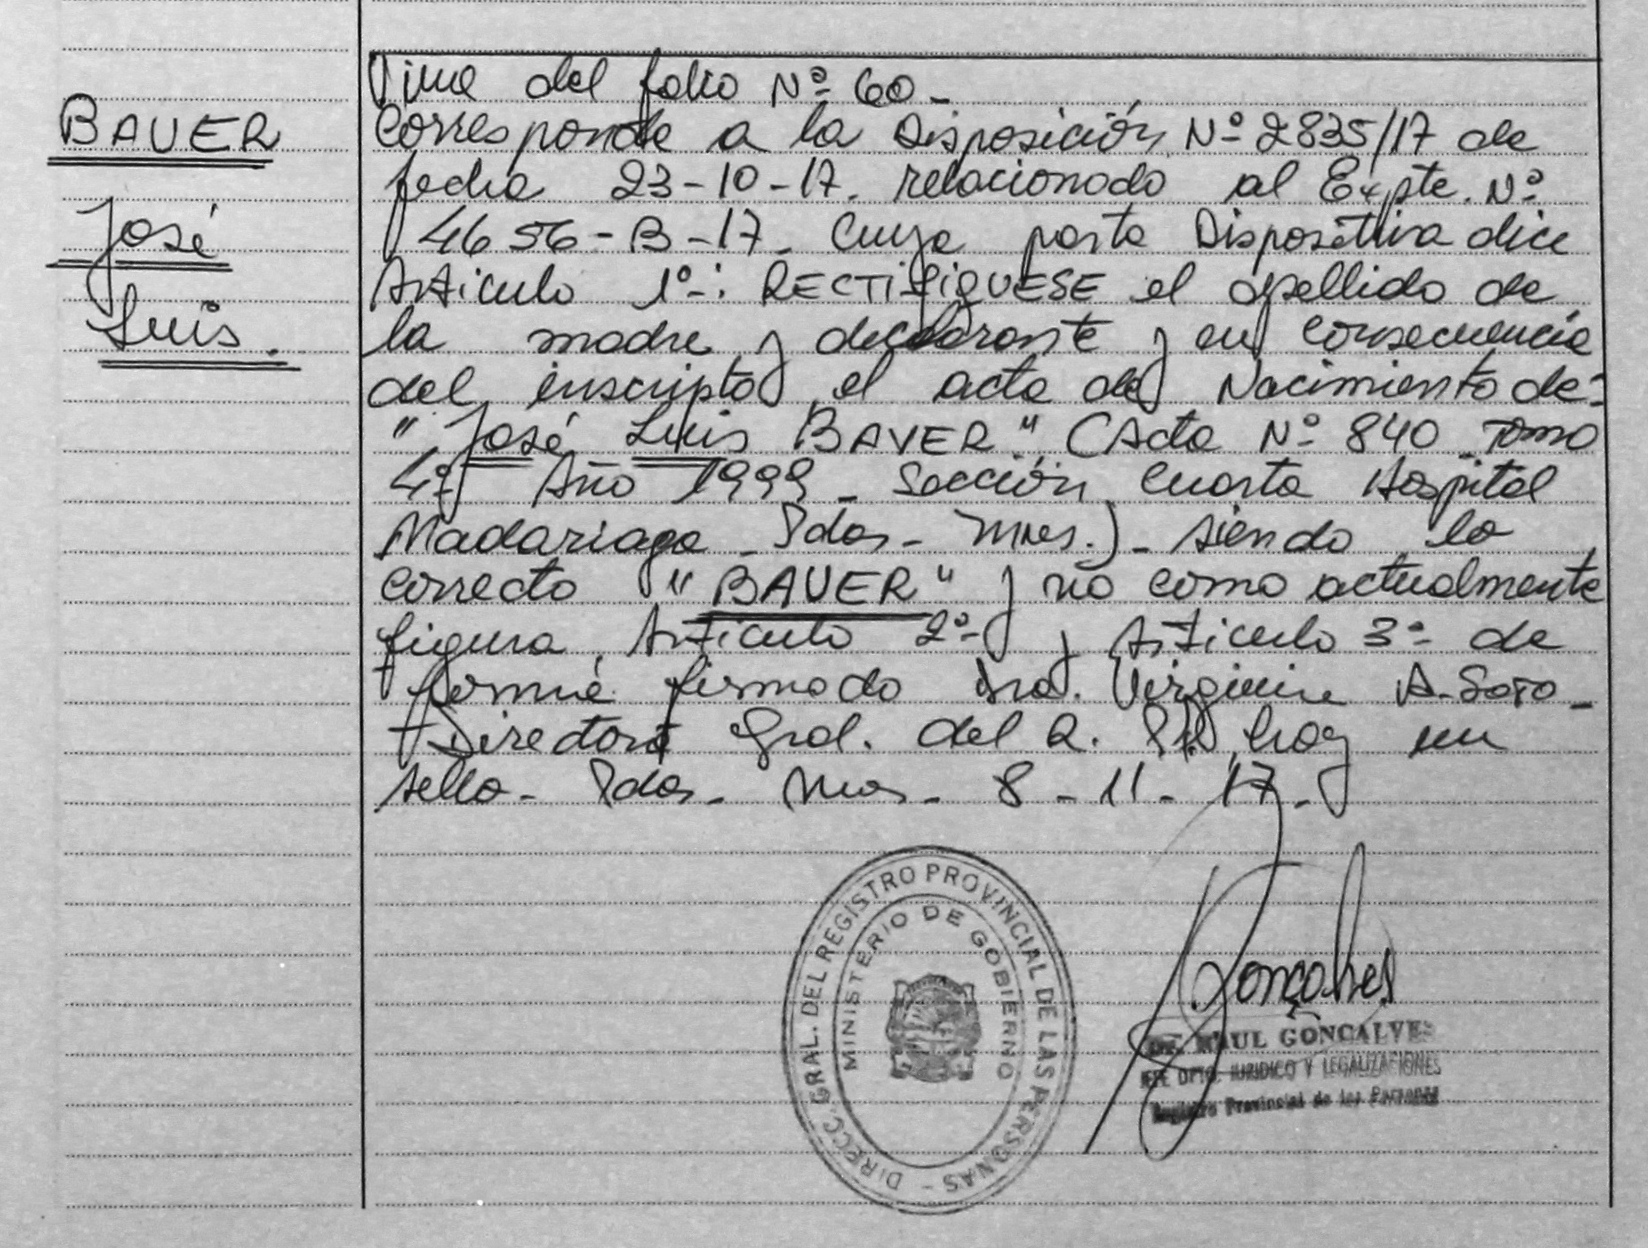 BAUER
José
Luis.
Viene del folio Nº 60-
Corresponde a la Disposición Nº 2835/17 de
fecha 23-10-17. relacionado al Expte. Nº
4656-B-17. Cuya parte Dispositiva dice
Artículo 1º-: RECTIFIQUESE el apellido de
la madre y declarante y en consecuencia
del inscripto el acta de Nacimiento de:
"José Luis BAVER" (Acta Nº 840 Tomo
4º Año 1999 - Sección Cuarta Hospital
Madariaga - Pdas - Mnes.) - siendo lo
correcto "BAUER" y no como actualmente
figura, Artículo 2º- y Artículo 3º- de
forma firmado Dra. Virginia A. Soto -
Directora Gral. del R. PP hay un
sello - Pdas - Mnes - 8 - 11 - 17 -
DIRECC. GRAL. DEL REGISTRO PROVINCIAL DE LAS PERSONAS -
MINISTERIO DE GOBIERNO
Gonçalves
RAUL GONCALVES
JEFE DPTO. JURIDICO Y LEGALIZACIONES
Registro Provincial de las Personas